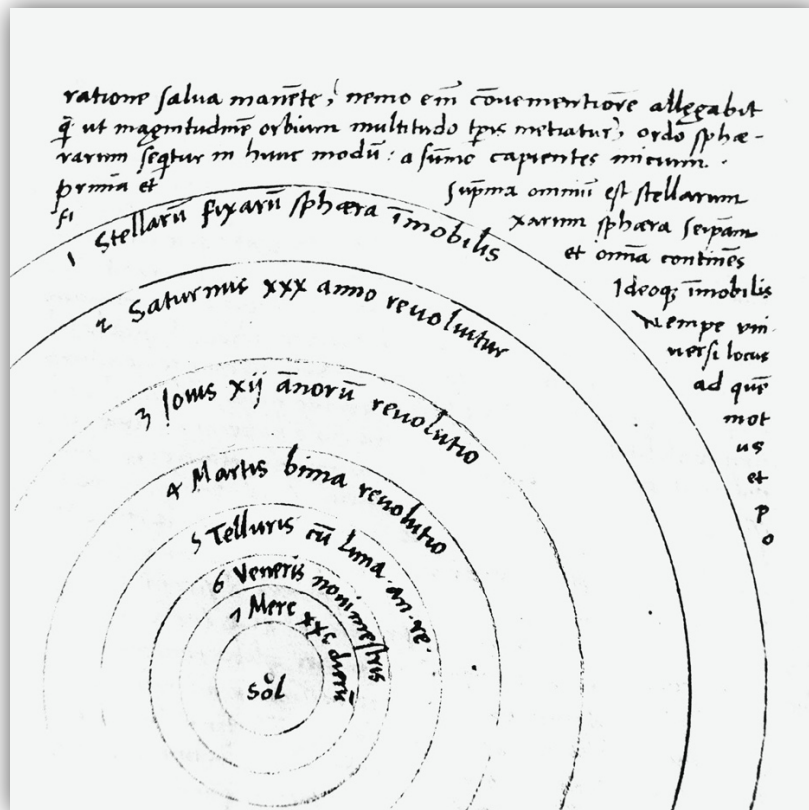 ratione salva manēte, nemo em̄ cōvenientiorē allegabit
q̄ ut magnitudinē orbium multitudo tp̄is metiatur, ordo sphæ-
rarum seq̄tur in hunc modū: a sūmo capientes initium.
prima et sup̄ma omniū est stellarum
fi xarum sphæra seip̄am
et om̄ia continēs
Ideoq; īmobilis
Nempe uni
uersi locus
ad quē
mot
us
et
p
o
1 Stellarū fixarū sphæra īmobilis
2 Saturnus xxx anno reuoluitur
3 Jouis xij ānorū reuolutio
4 Martis bima reuolutio
5 Telluris cū Luna an. re.
6 Veneris nonimestris
7 Merc xxc dierū
Sol